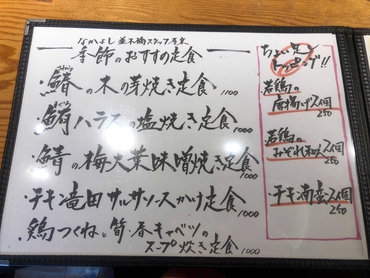 なかよし 並木橋スタッフ考案
季節のおすすめ定食
・鰆の木の芽焼き定食 1100
・鮪ハラスの塩焼き定食 1000
・鯖の梅大葉味噌焼き定食 1000
・チキン竜田サルサソースかけ定食 1000
・鶏つくねと筍・春キャベツの
スープ炊き定食 1000
ちょい足し
トッピング!!
若鶏の
唐揚げ2個
250
若鶏の
おぞれ和え2個
250
チキン南蛮2個
250